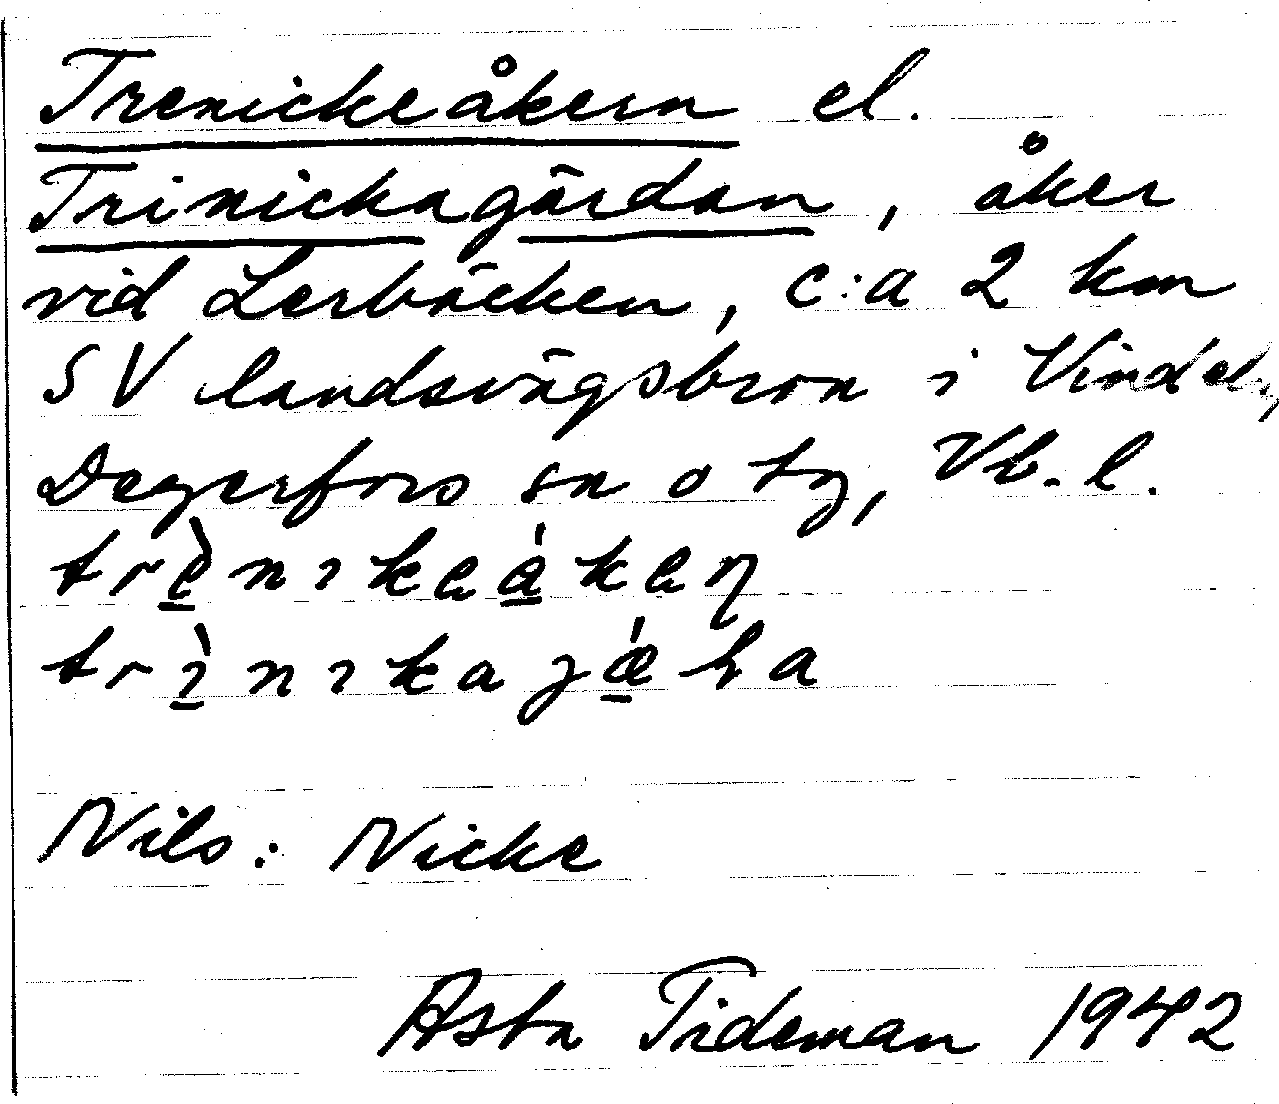 Trenickeåkern el.
Trinickagärdan, åker
vid Lerbäcken, c:a 2 km
SV landsvägsbron i Vindeln,
Degerfors sn o tg, Vb. l.
Nils: Nicke
Asta Tideman 1942